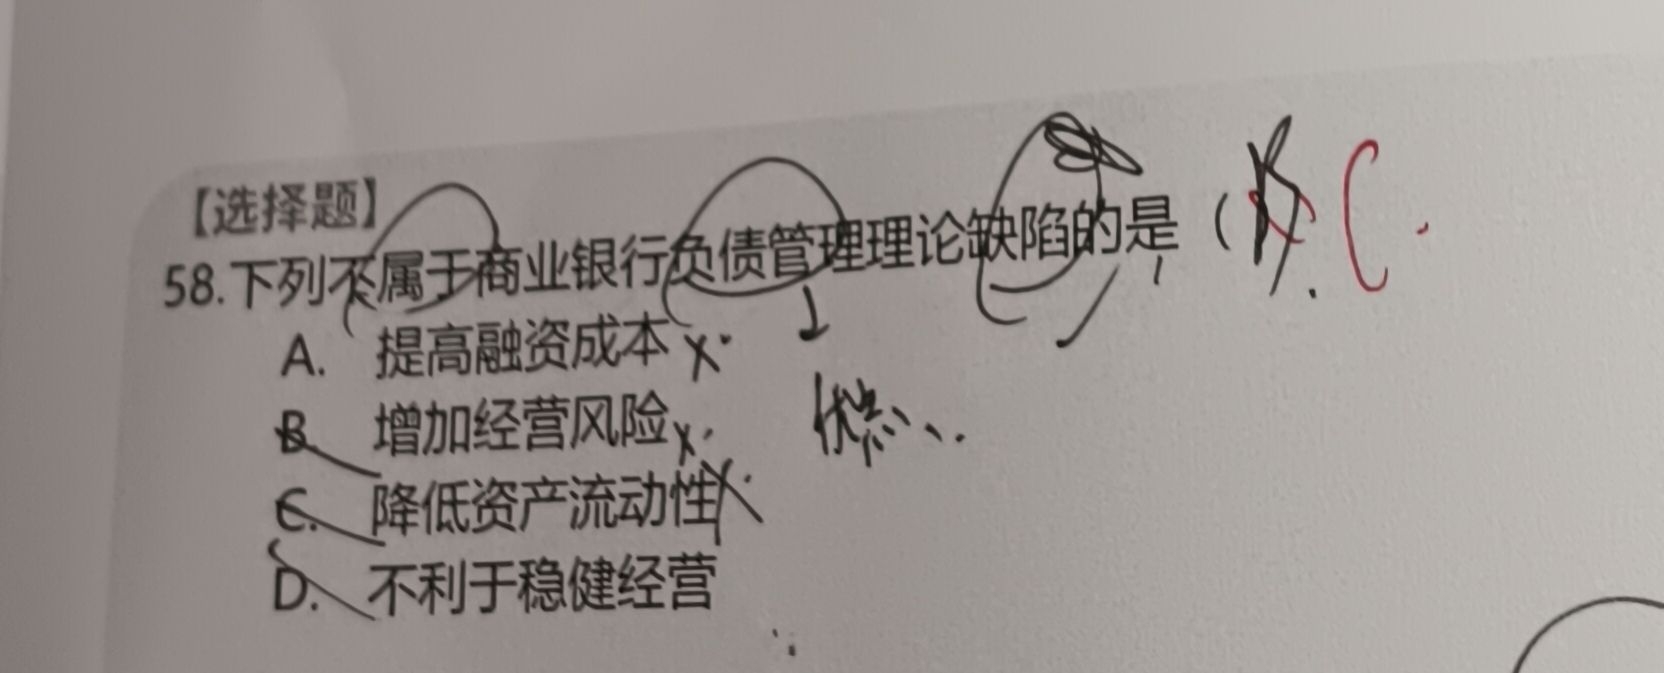 【选择题】
58.下列不属于商业银行负债管理理论缺陷的是（ C.
A. 提高融资成本 ×
B. 增加经营风险 ×
C. 降低资产流动性 ×
D. 不利于稳健经营
优点